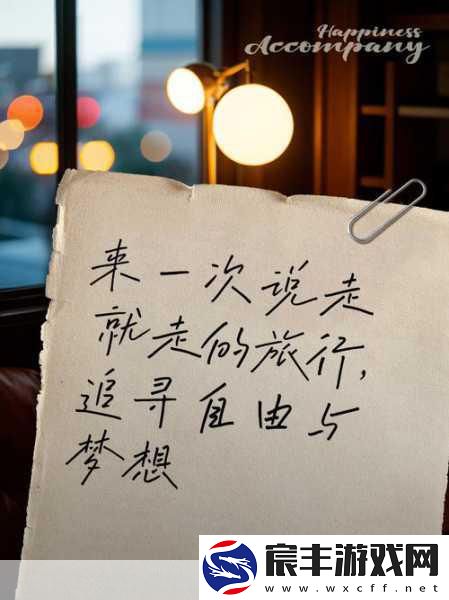 Happiness
Accompany
来一次说走
就走的旅行，
追寻自由与
梦想
宸丰游戏网
www.wxcff.net